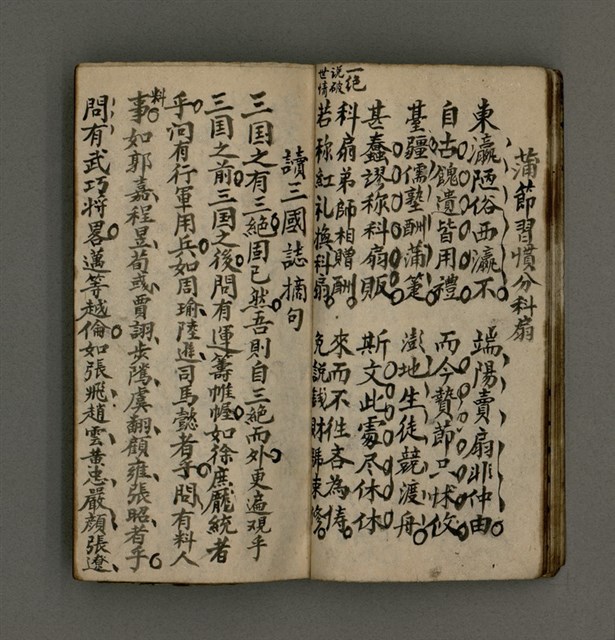 蒲節習慣分科扇
東瀛陋俗西瀛不 端陽賣扇非仲由
自古餽遺皆用禮 而今贄節只怵攸
基疆儒塾酬蒲箑 澎地生徒競渡舟
甚蠢謬称科扇販 斯文此處尽休休
科扇弟師相贈酬 來而不徃吝為儔
若称紅礼換科扇 免説錢財
一絕
説破
世情
讀三國誌摘句
三国之有三絕固已然吾則自三絕而外更遍观乎
三国之前三国之後問有運籌帷幄如徐庶龐統者
乎问有行軍用兵如周瑜陸遜司馬懿者乎問有料人
料事如郭嘉程昱荀彧賈詡步隲虞翻顧雍張昭者乎
問有武巧將畧邁等越倫如張飛趙雲黃忠嚴顏張遼